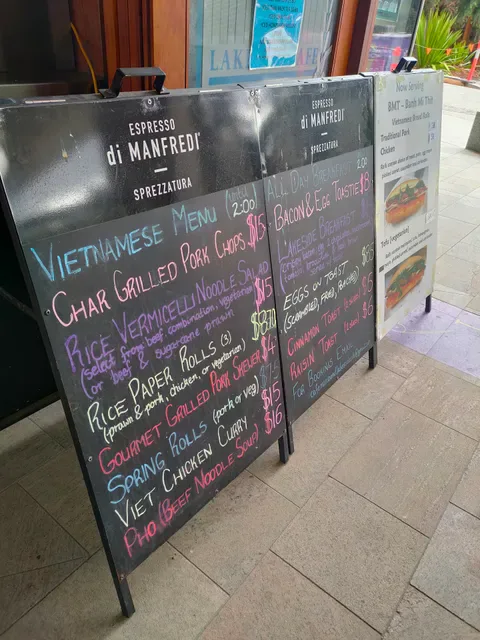 LAKE
ESPRESSO
di MANFREDI
SPREZZATURA
VIETNAMESE MENU (until 2:00)
CHAR GRILLED PORK CHOPS $15
RICE VERMICELLI NOODLE SALAD $15
(select from beef combination, vegetarian
or beef & sugarcane prawn)
RICE PAPER ROLLS (3)
(prawn & pork, chicken, or vegetarian)
GOURMET GRILLED PORK SKEWER $4
SPRING ROLLS (pork or veg)
VIET CHICKEN CURRY $15
PHO (BEEF NOODLE SOUP) $16
ESPRESSO
di MANFREDI
SPREZZATURA
ALL DAY 2:00
BACON & EGG TOASTIE $8
LAKESIDE BREAKFAST
EGGS ON TOAST
(SCRAMBLED, FRIED, POACHED)
CINNAMON TOAST $5
RAISIN TOAST $6
FOR BOOKING EMAIL
Now Serving
BMT - Banh Mi Thit
Vietnamese Bread Rolls
Traditional Pork
Chicken
Tofu (vegetarian)